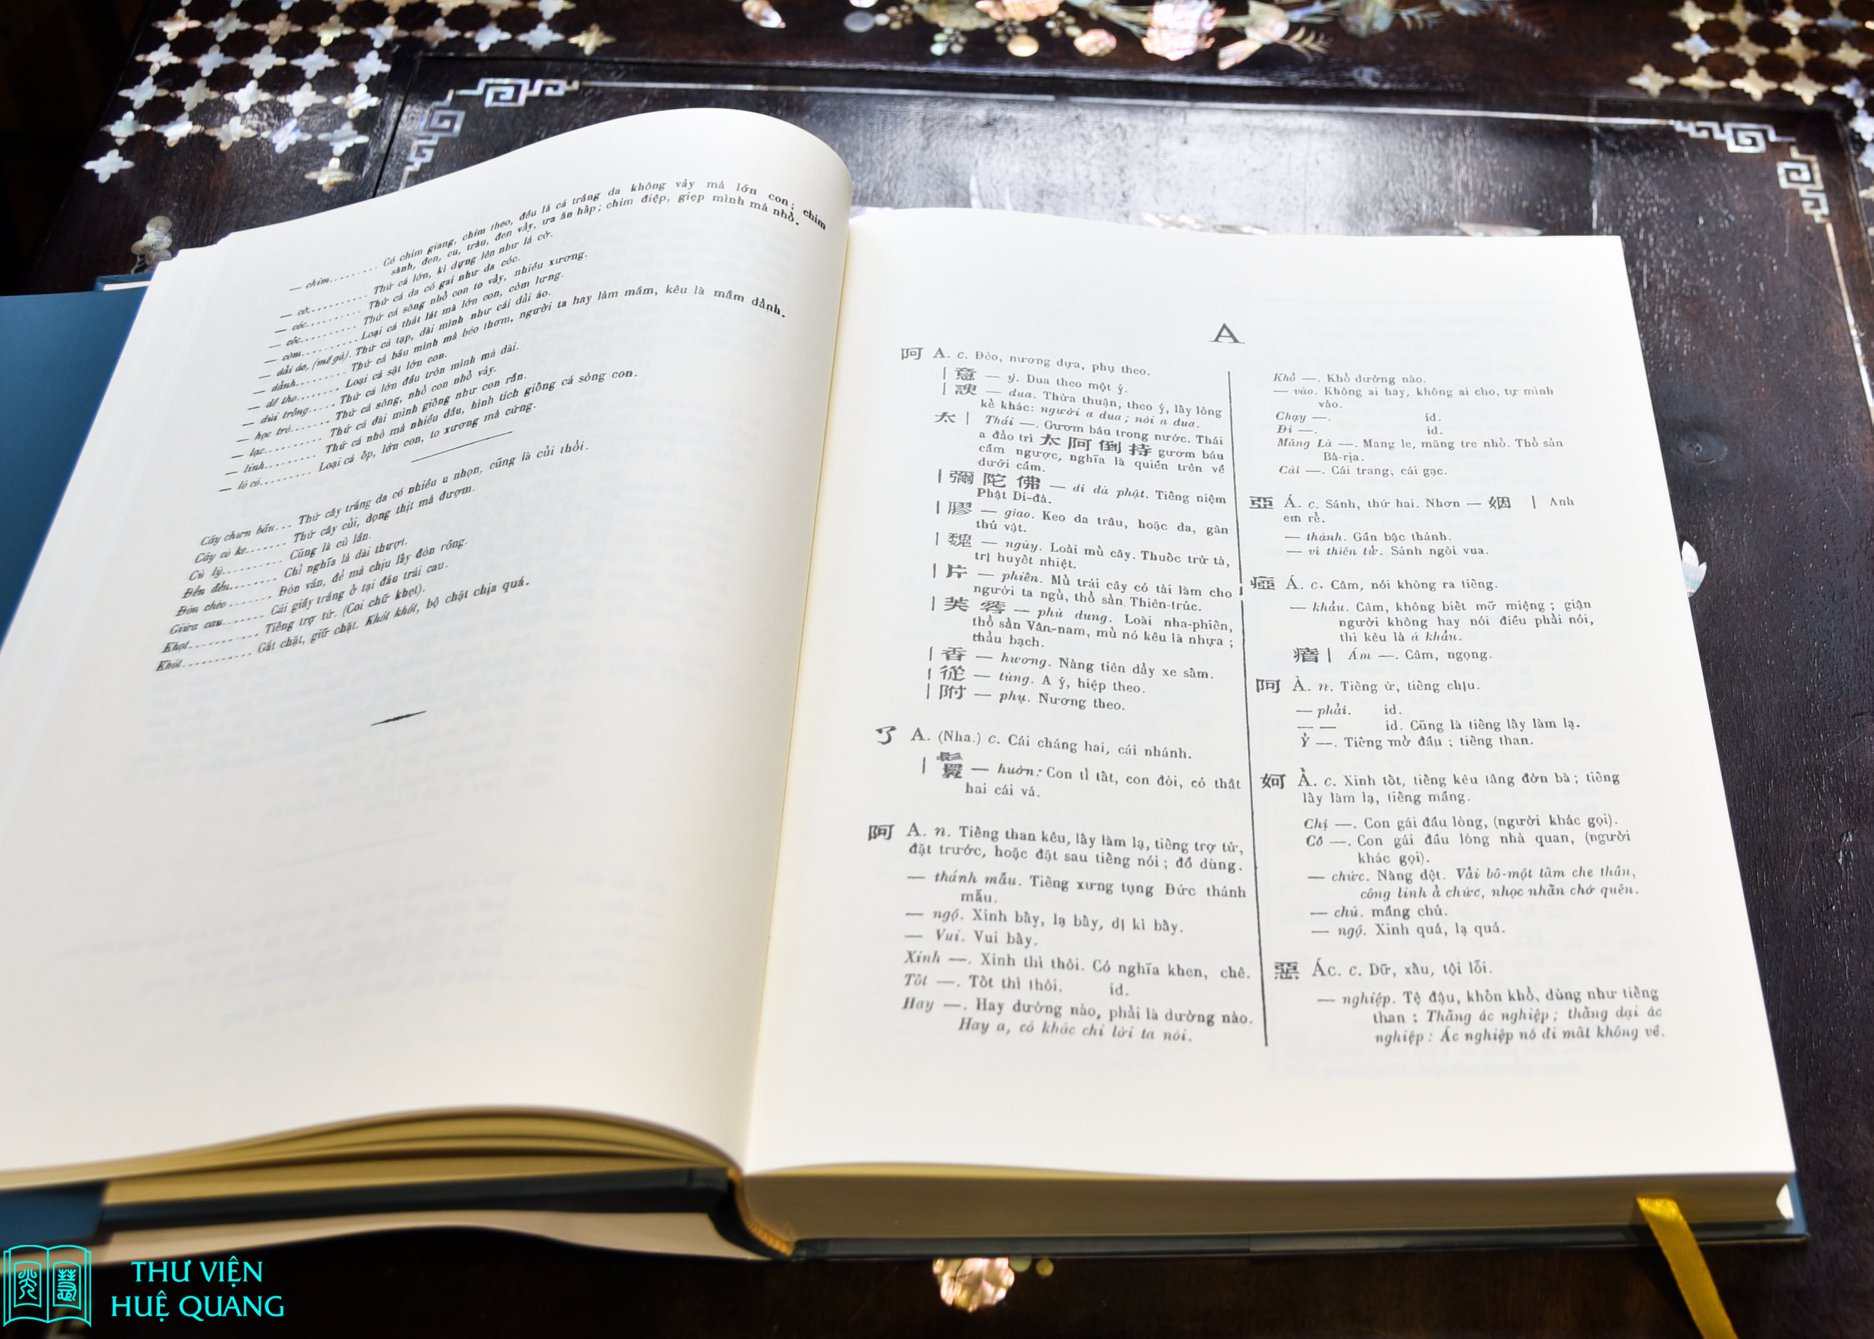 — chim......... Có chim giang, chim theo, đều là cá trắng da không vảy mà lớn con; chim
sành, đen, cu, trâu, đen vảy, ưa ăn hắp; chim điệp, giẹp mình mà nhỏ.
— cờ........... Thứ cá lớn, kì dựng lên như lá cờ.
— cóc.......... Thứ cá da có gai như da cóc.
— cốc.......... Thứ cá sông nhỏ con to vảy, nhiều xương.
— còm.......... Loại cá thát lát mà lớn con, còm lưng.
— dải áo, (mề gà). Thứ cá tạp, dài mình như cái dải áo.
— dảnh......... Thứ cá bầu mình mà béo thơm, người ta hay làm mắm, kêu là mắm dảnh.
— dề tho....... Loại cá sặt lớn con.
— dùi trống..... Thứ cá lớn đầu tròn mình mà dài.
— học trò....... Thứ cá sông, nhỏ con nhỏ vảy.
— lạc.......... Thứ cá dài mình giống như con rắn.
— linh.......... Thứ cá nhỏ mà nhiều dầu, hình tích giống cá sòng con.
— lò có......... Loại cá ốp, lớn con, to xương mà cứng.
Cây chưn bầu... Thứ cây trắng da có nhiều u nhọn, cũng là củi thổi.
Cây cò ke....... Thứ cây củi, dọng thịt mà đượm.
Cù lỳ.......... Cũng là cù lần.
Đền đền........ Chỉ nghĩa là dài thượi.
Đòn chèo....... Đòn ván, để mà chịu lấy đòn rồng.
Giừa cau....... Cái giấy trắng ở tại đầu trái cau.
Khọt........... Tiếng trợ từ. (Coi chữ khẹt).
Khót........... Gắt chặt, giữ chặt. Khót khót, bộ chặt chịa quá.
A
阿 A. c. Đèo, nương dựa, phụ theo.
| 意 — ý. Dua theo một ý.
| 諛 — dua. Thừa thuận, theo ý, lấy lòng
kẻ khác: người a dua; nói a dua.
太 | Thái —. Gươm báu trong nước. Thái
a đảo trì 太阿倒持 gươm báu
cầm ngược, nghĩa là quiền trên về
dưới cầm.
| 彌陀佛 — di đà phật. Tiếng niệm
Phật Di-đà.
| 膠 — giao. Keo da trâu, hoặc da, gân
thú vật.
| 魏 — ngùy. Loài mủ cây. Thuốc trừ tà,
trị huyết nhiệt.
| 片 — phiến. Mủ trái cây có tài làm cho
người ta ngủ, thổ sản Thiên-trúc.
| 芙蓉 — phù dung. Loài nha-phiến,
thổ sản Vân-nam, mủ nó kêu là nhựa;
thẩu bạch.
| 香 — hương. Nàng tiên đẩy xe sấm.
| 從 — tùng. A ý, hiệp theo.
| 附 — phụ. Nương theo.
了 A. (Nha.) c. Cái cháng hai, cái nhánh.
| 鬟 — huờn: Con tỉ tất, con đòi, có thắt
hai cái vá.
阿 A. n. Tiếng than kêu, lấy làm lạ, tiếng trợ từ,
đặt trước, hoặc đặt sau tiếng nói; đồ dùng.
— thánh mẫu. Tiếng xưng tụng Đức thánh
mẫu.
— ngộ. Xinh bấy, lạ bấy, dị kì bấy.
— Vui. Vui bấy.
Xinh —. Xinh thì thôi. Có nghĩa khen, chê.
Tốt —. Tốt thì thôi. id.
Hay —. Hay dường nào, phải là dường nào.
Hay a, có khác chi lời ta nói.
Khổ —. Khổ dường nào.
— vào. Không ai hay, không ai cho, tự mình
vào.
Chạy —. id.
Đi —. id.
Măng Là —. Mang le, măng tre nhỏ. Thổ sản
Bà-rịa.
Cải —. Cái trang; cái gạc.
亞 Á. c. Sánh, thứ hai. Nhơn — 姻 | Anh
em rể.
— thánh. Gần bậc thánh.
— vì thiên tử. Sánh ngôi vua.
瘂 Á. c. Câm, nói không ra tiếng.
— khẩu. Câm, không biết mở miệng; giận
người không hay nói điều phải nói,
thì kêu là á khẩu.
瘖 | Ám —. Câm, ngọng.
阿 À. n. Tiếng ừ, tiếng chịu.
— phải. id.
— — id. Cũng là tiếng lấy làm lạ.
Ỷ —. Tiếng mở đầu; tiếng than.
妸 Ả. c. Xinh tốt, tiếng kêu tâng đờn bà; tiếng
lấy làm lạ, tiếng mắng.
Chị —. Con gái đầu lòng, (người khác gọi).
Cô —. Con gái đầu lòng nhà quan, (người
khác gọi).
— chức. Nàng dệt. Vải bô-một tấm che thân,
công linh ả chức, nhọc nhằn chớ quên.
— chú. mắng chủ.
— ngộ. Xinh quá, lạ quá.
惡 Ác. c. Dữ, xấu, tội lỗi.
— nghiệp. Tệ đậu, khốn khổ, dùng như tiếng
than: Thằng ác nghiệp; thằng dại ác
nghiệp: Ác nghiệp nó đi mất không về.
THƯ VIỆN
HUỆ QUANG